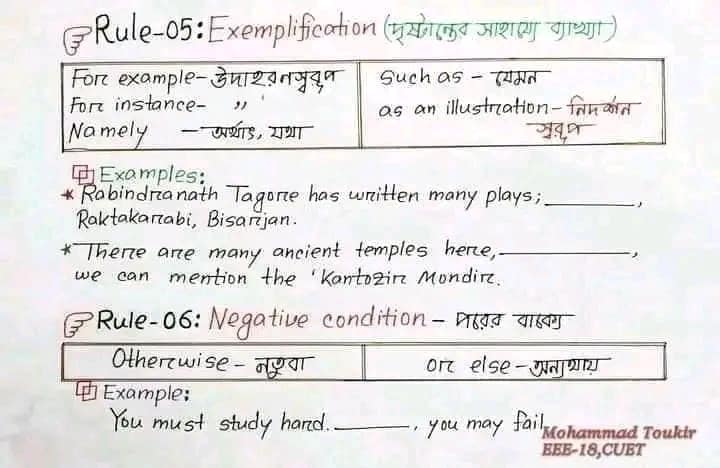 Rule-05: Exemplification (দৃষ্টান্তের সাহায্যে ব্যাখ্যা)
For example- উদাহরনস্বরূপ
For instance- ,,
Namely - অর্থাৎ, যথা
Such as - যেমন
as an illustration- নিদর্শন
স্বরূপ
Examples:
* Rabindranath Tagore has written many plays; ________,
Raktakarabi, Bisarjan.
* There are many ancient temples here, ________,
we can mention the 'Kantozir Mondir.
Rule-06: Negative condition - পরের বাক্যে
Otherwise - নতুবা
or else - অন্যথায়
Example:
You must study hard. ________, you may fail
Mohammad Toukir
EEE-18,CUET